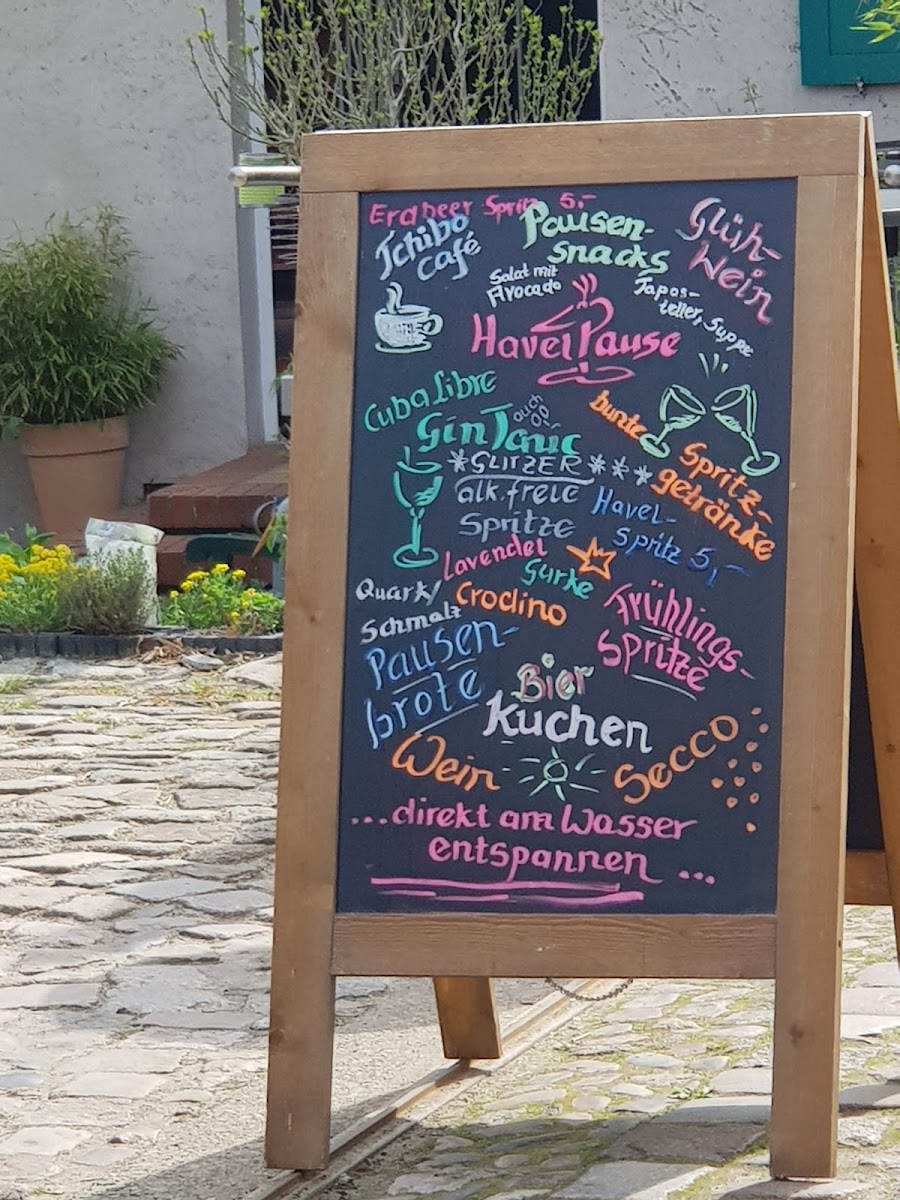 Erdbeer Spritz 5.-
Tchibo
Café
Pausen-
snacks
Glüh-
Wein
Salat mit
Avocado
Tapas-
teller, Suppe
HavelPause
Cuba Libre
Gin Tonic
auch
*GLITZER***
alk. freie
Spritze
bunte
Spritz-
getränke
Havel-
Spritz 5,-
Lavendel
Gurke
Crodino
Quark/
Schmalz
Pausen-
brote
Frühlings-
Spritze
Bier
Kuchen
Wein
Secco
...direkt am Wasser
entspannen ...